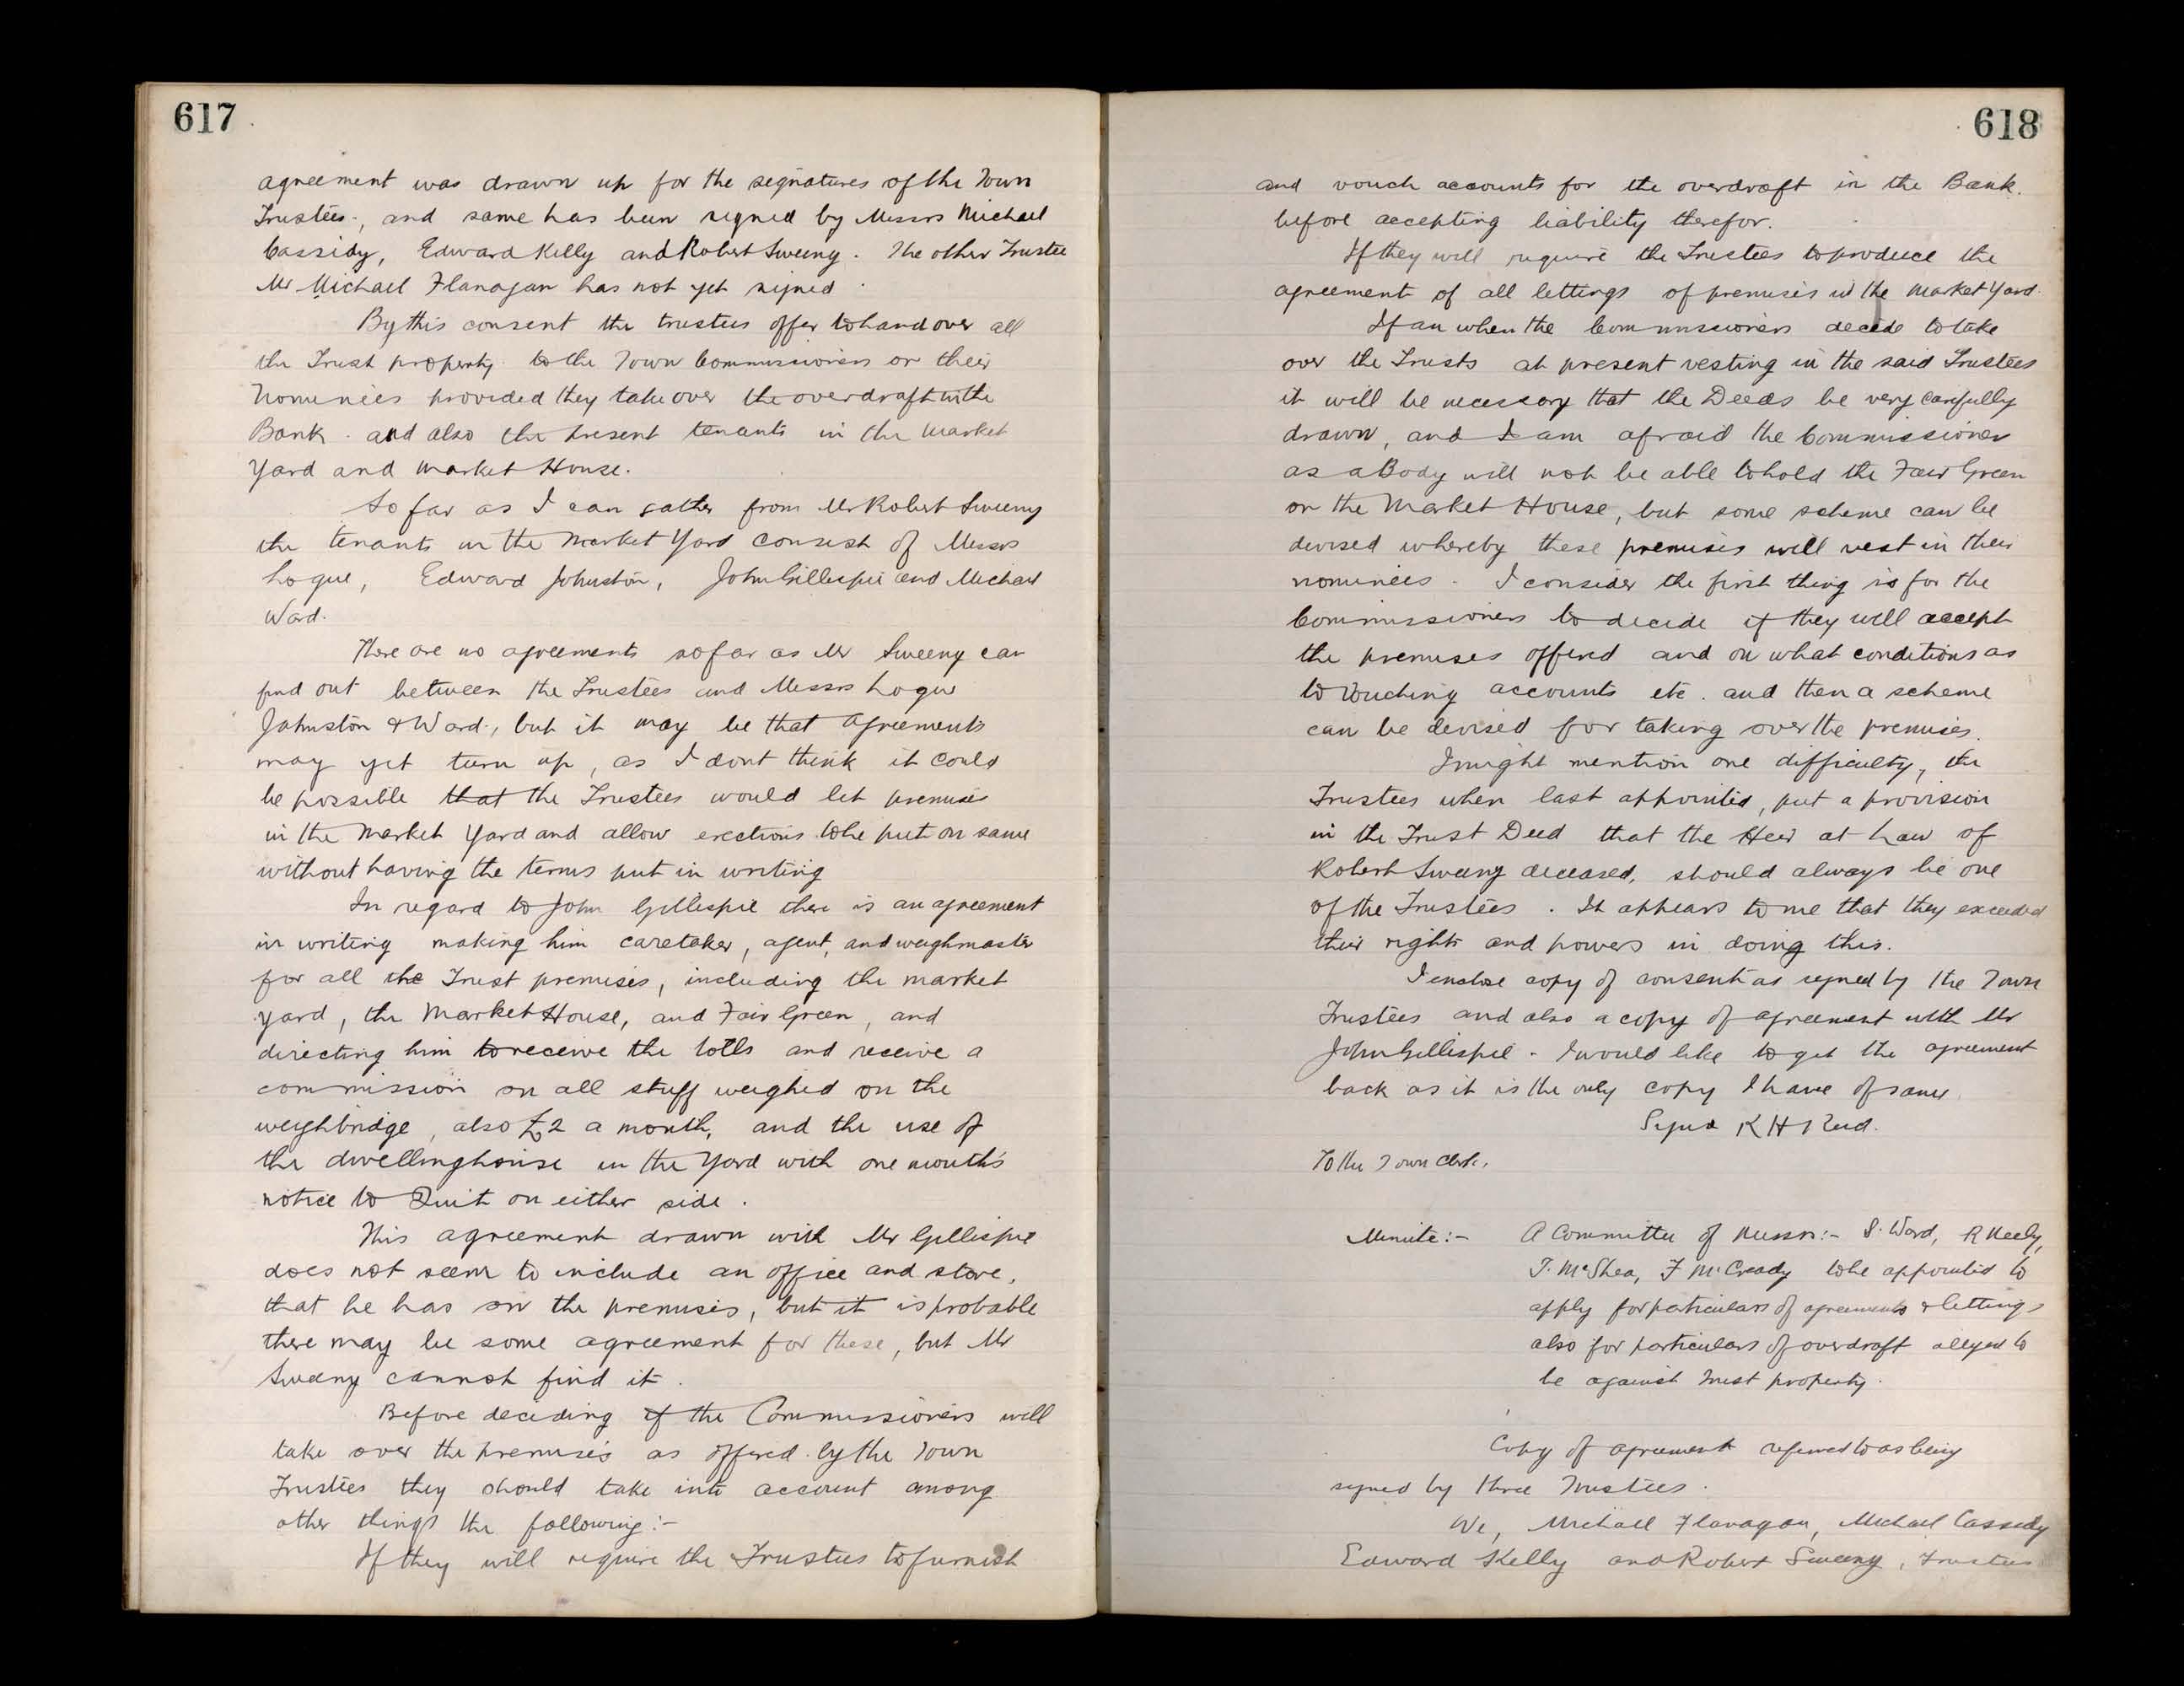 617
agreement was drawn up for the signatures of the Town
Trustees, and same has been signed by Messrs Michael
Cassidy, Edward Kelly and Robert Sweeny. The other Trustee
Mr Michael Flanagan has not yet signed.
By this consent the trustees offer to hand over all
the Trust property to the Town Commissioners or their
Nominees provided they take over the overdraft in the
Bank. and also the present tenants in the Market
Yard and Market House.
So far as I can gather from Mr Robert Sweeny
the tenants in the Market Yard consist of Messrs
Logue, Edward Johnston, John Gillespie and Michael
Ward.
There are no agreements so far as Mr Sweeny can
find out between the Trustees and Messrs Logue
Johnston & Ward, but it may be that agreements
may yet turn up, as I dont think it could
be possible that the Trustees would let premises
in the Market Yard and allow erections to be put on same
without having the terms put in writing
In regard to John Gillespie there is an agreement
in writing making him caretaker, agent, and weighmaster
for all the Trust premises, including the market
yard, the Market House, and Fair Green, and
directing him to receive the tolls and receive a
commission on all stuff weighed on the
weighbridge, also £2 a month, and the use of
the dwellinghouse in the Yard with one month's
notice to Quit on either side.
This agreement drawn with Mr Gillespie
does not seem to include an office and store,
that he has on the premises, but it is probable
there may be some agreement for these, but Mr
Sweeny cannot find it.
Before deciding if the Commissioners will
take over the premises as offered by the Town
Trustees they should take into account among
other things the following:-
If they will require the Trustees to furnish
618
and vouch accounts for the overdraft in the Bank.
before accepting liability therefor.
If they will require the Trustees to produce the
agreement of all lettings of premises in the Market Yard.
If an when the Commissioners decide to take
over the Trusts at present vesting in the said Trustees
it will be necessary that the Deeds be very carefully
drawn, and I am afraid the Commissioners
as a Body will not be able to hold the Fair Green
or the Market House, but some scheme can be
devised whereby these premises will vest in their
nominees. I consider the first thing is for the
Commissioners to decide if they will accept
the premises offered and on what conditions as
to vouching accounts etc. and then a scheme
can be devised for taking over the premises.
I might mention one difficulty, the
Trustees when last appointed, put a provision
in the Trust Deed that the Heir at Law of
Robert Sweeny deceased, should always be one
of the Trustees. It appears to me that they exceeded
their rights and powers in doing this.
I enclose copy of consent as signed by the Town
Trustees and also a copy of agreement with Mr
John Gillespie. I would like to get the agreement
back as it is the only copy I have of same.
Signed R H Reid.
To the Town Clerk.
Minute:- A Committee of Messrs:- S. Ward, R Neely,
T. McShea, F McCready to be appointed to
apply for paticulars of agreements & lettings
also for particulars of overdraft alleged to
be against Trust property.
Copy of agreement referred to as being
signed by three Trustees.
We, Michael Flanagan, Michael Cassidy
Edward Kelly and Robert Sweeny, Trustees